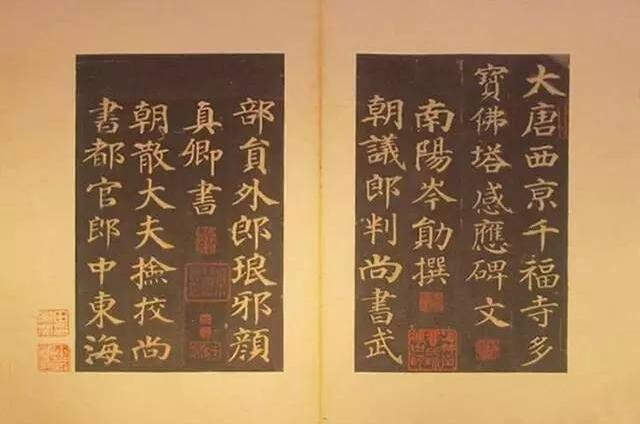 大唐西京千福寺多
寶佛塔感應碑文
南陽岑勛撰
朝議郎判尚書武
部員外郎琅邪顏
真卿書
朝散大夫撿校尚
書都官郎中東海